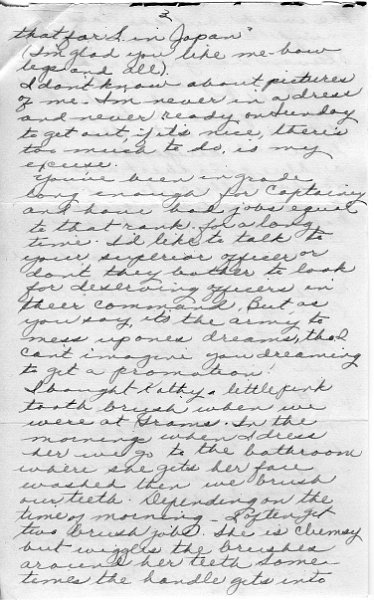 2
that far S. in Japan"
(I'm glad you like me-bow
legs and all).
I don't know about pictures
of me. I'm never in a dress
and never ready on Sunday
to get out, if it's nice, there's
too much to do, is my
excuse.
You've been in grade
long enough for Captaincy
and have had jobs equal
to that rank for a long
time. I'd like to talk to
your superior officer or
don't they bother to look
for deserving officers in
their command. But as
you say, its the army to
mess up ones dreams, tho I
can't imagine you dreaming
to get a promotion.
I bought Kathy a little pink
tooth brush when we
were at Grams. In the
morning when I dress
her we go to the bathroom
where she gets her face
washed then we brush
our teeth. Depending on the
time of morning - I often get
two brush jobs. She is clumsy
but wiggles the brushes
around her teeth some-
times the handle gets into